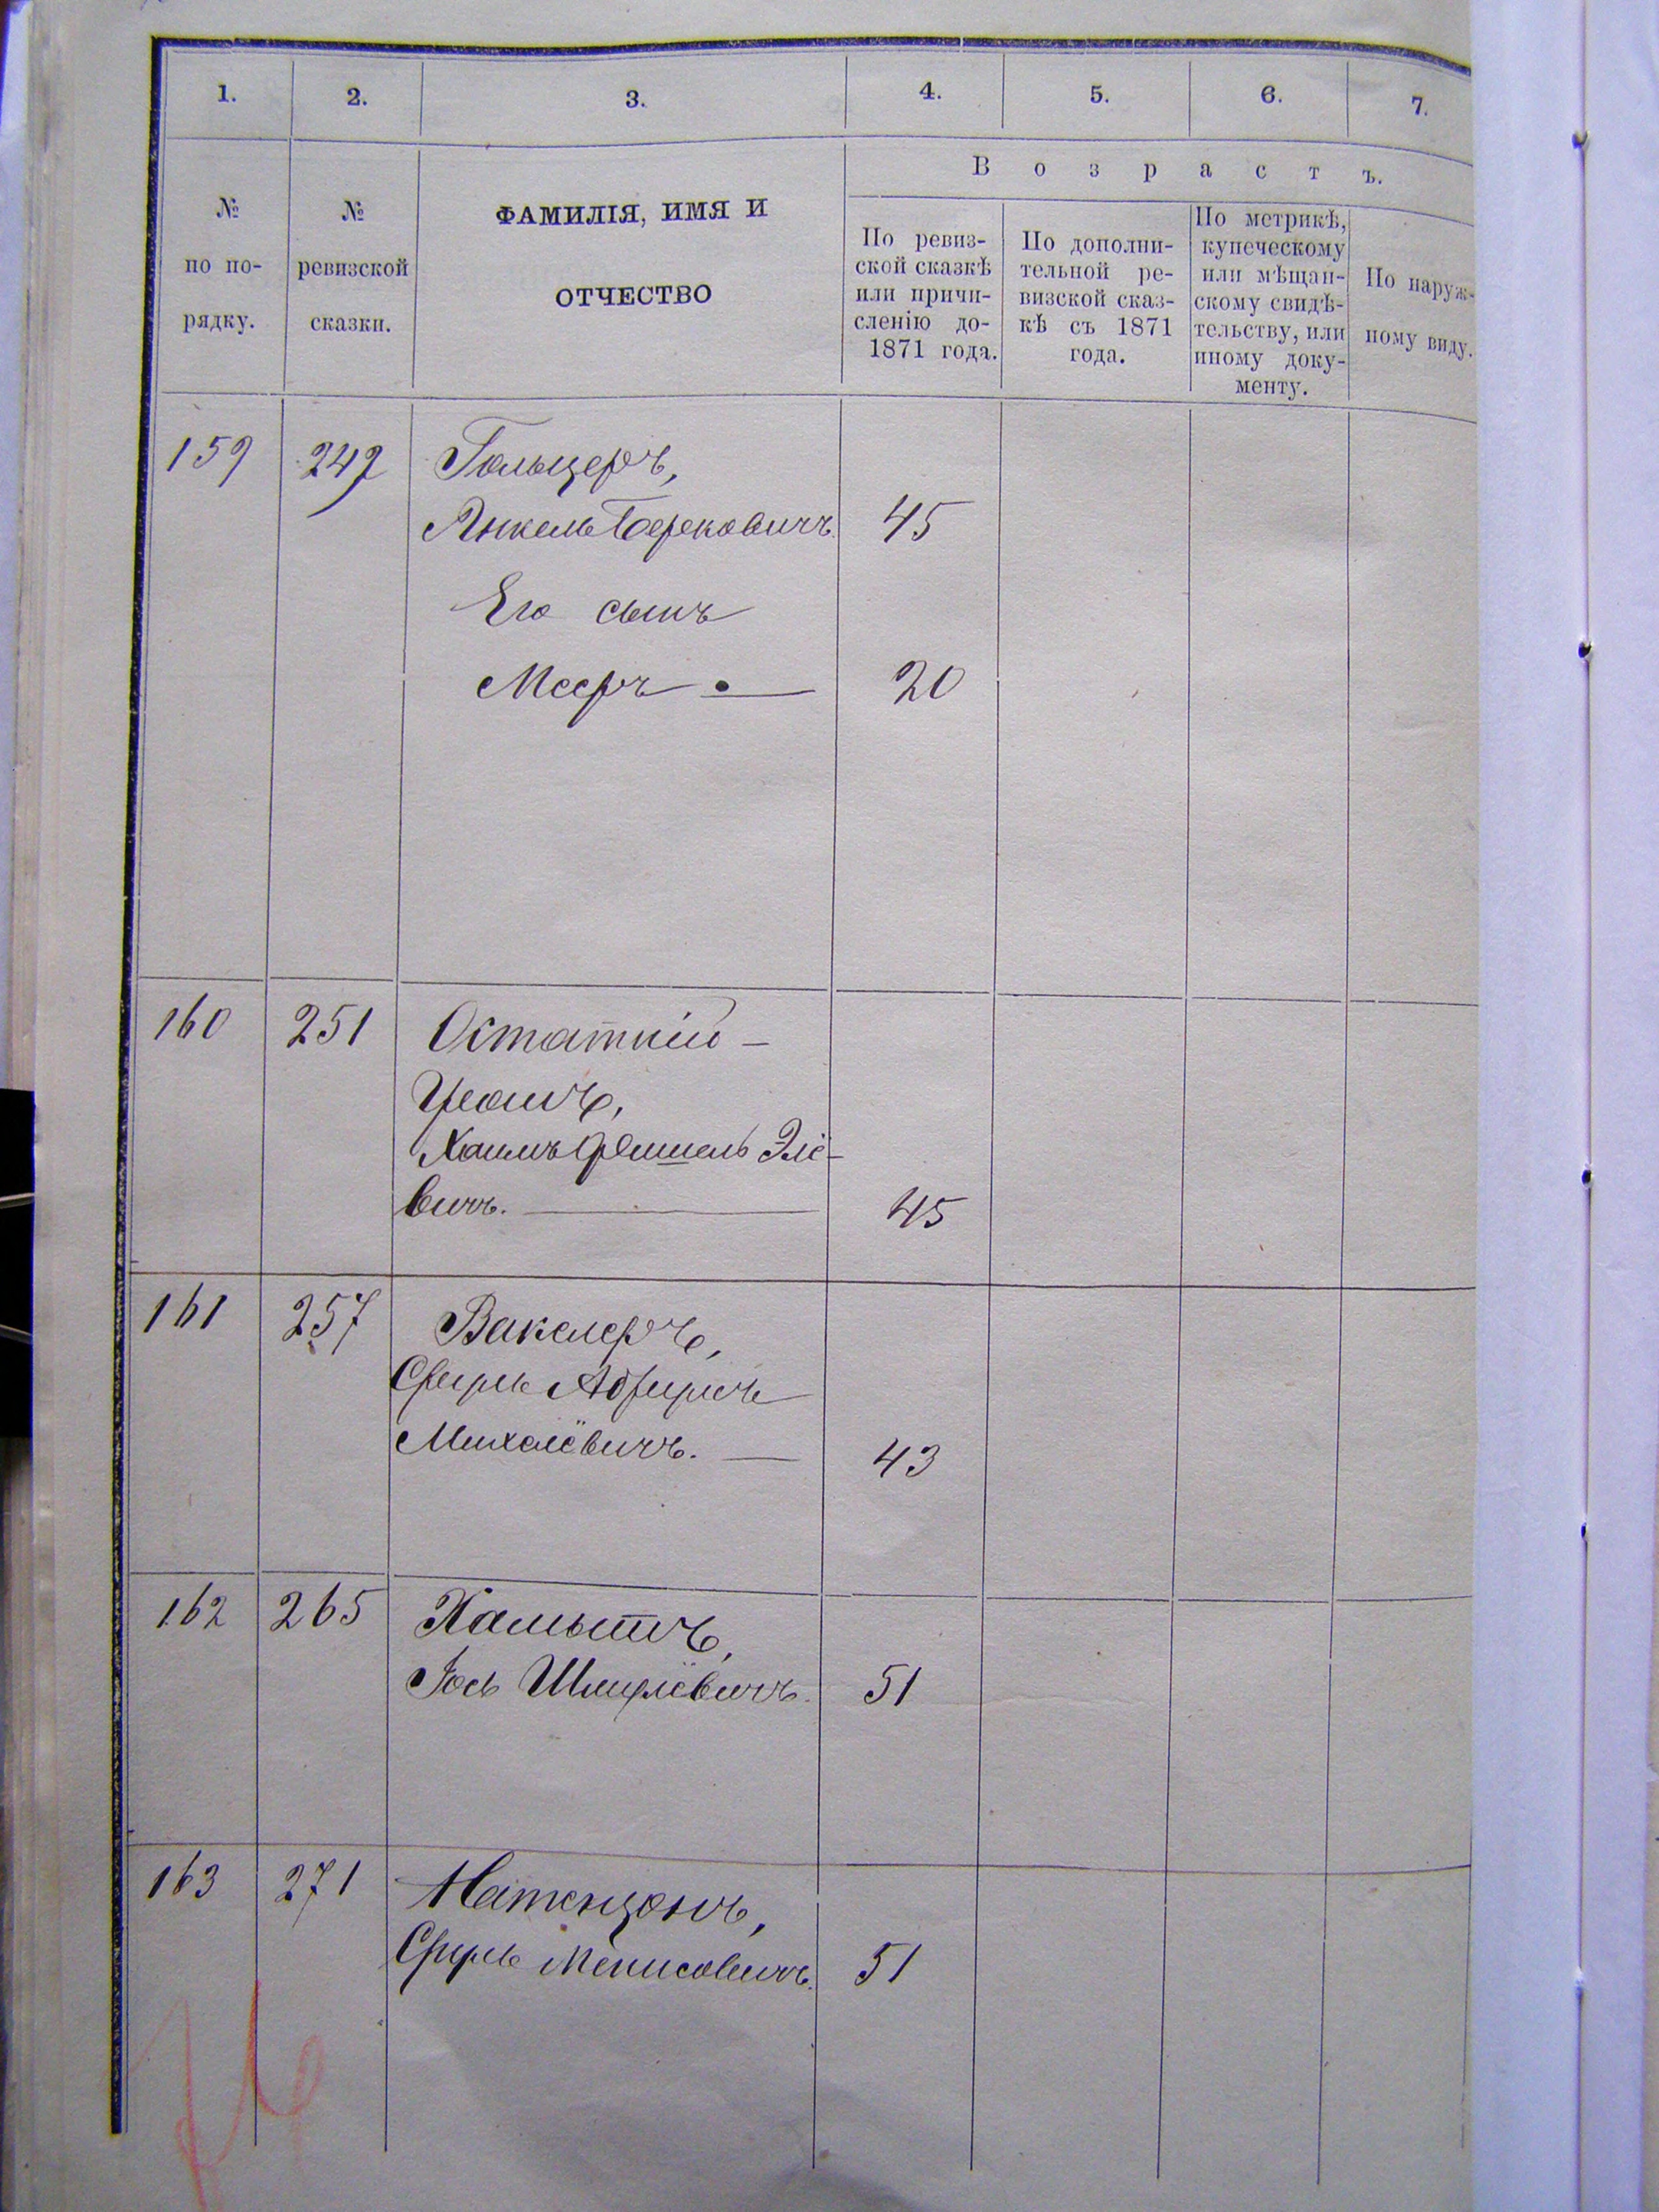 1. 2. 3. 4. 5. 6. 7.
№
по по-
рядку.
№
ревизской
сказки.
ФАМИЛІЯ, ИМЯ И
ОТЧЕСТВО
Возрастъ.
По ревиз-
ской сказкѣ
или причи-
сленію до-
1871 года.
По дополни-
тельной ре-
визской сказ-
кѣ съ 1871
года.
По метрикѣ,
купеческому
или мѣщан-
скому свидѣ-
тельству, или
иному доку-
менту.
По наруж-
ному виду.
159 242 Гольцеръ,
Янкель Берековичъ. 45
Его сынъ
Мееръ 20
160 251 Остаткій -
Хаимъ Фишель Элё-
вичъ. 45
161 257 Вакслеръ,
Сруль Абрумъ
Михелёвичъ. 43
162 265 Хамытъ,
Іось Шмулёвичъ. 51
163 271 Натензонъ,
Сруль Менисовичъ. 51